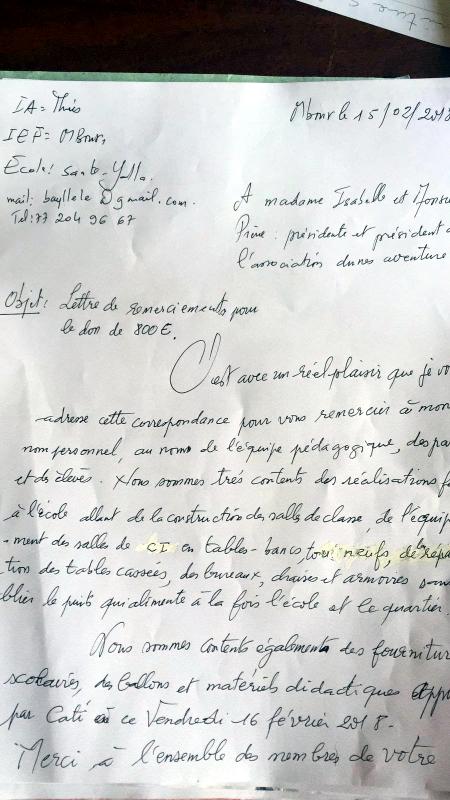 IA = Thiès
Mbour le 15/02/2018
IEF = Mbour,
École: Santo-Yalla.
mail: bayllele@gmail.com.
Tel: 77 204 96 67
A madame Isabelle et Monsie
Prève: présidente et président d
l'association dunes aventure
Objet: Lettre de remerciements pour
le don de 800€.
C'est avec un réel plaisir que je vo
adresse cette correspondance pour vous remercier à mon
nom personnel, au nom de l'équipe pédagogique, des pa
et des élèves. Nous sommes trés contents des réalisations f
à l'école allant de la construction des salles de classe, de l'équip
-ment des salles de CI en tables-bancs, tous neufs, de répa
tion des tables cassées, des bureaux, chaises et armoires sans
blier le puits qui alimente à la fois l'école et le quartier.
Nous sommes contents également des fournitur
scolaires, des ballons et matériels didactiques appo
par Cati en ce Vendredi 16 février 2018-
Merci à l'ensemble des membres de votre